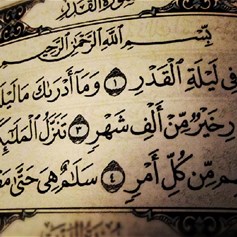 سورة القدر
بِسْمِ اللَّهِ الرَّحْمَٰنِ الرَّحِيمِ
فِي لَيْلَةِ الْقَدْرِ ١ وَمَا أَدْرَىٰكَ مَا لَيْلَةُ
خَيْرٌ مِّنْ أَلْفِ شَهْرٍ ٣ تَنَزَّلُ
مِّن كُلِّ أَمْرٍ ٤ سَلَامٌ هِيَ حَتَّىٰ